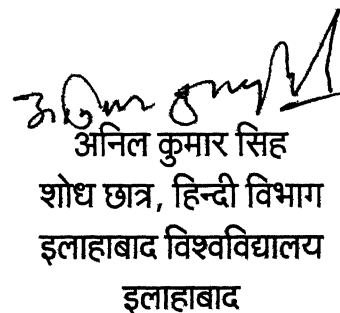 अनिल कुमार सिंह
अनिल कुमार सिह
शोध छात्र, हिन्दी विभाग
इलाहाबाद विश्वविद्यालय
इलाहाबाद